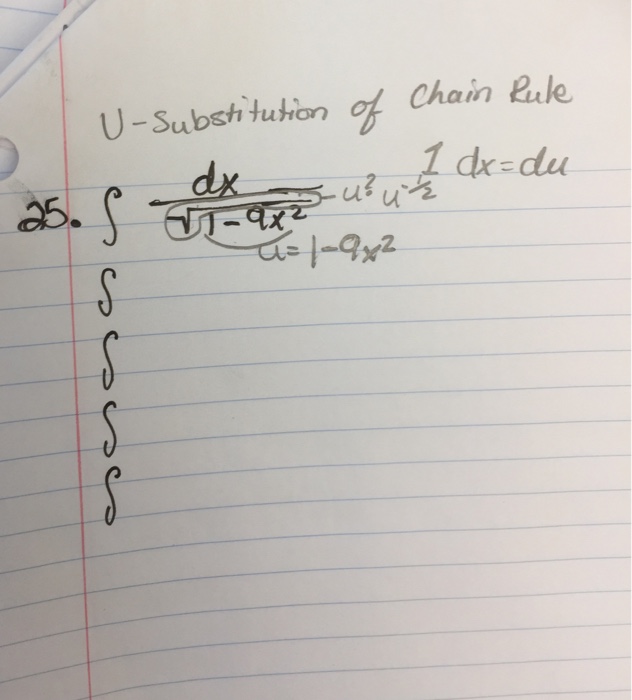 U-Substitution of Chain Rule
25. ∫ dx / √(1-9x²) - u? u^-1/2 1 dx=du
u=1-9x²
∫
∫
∫
∫